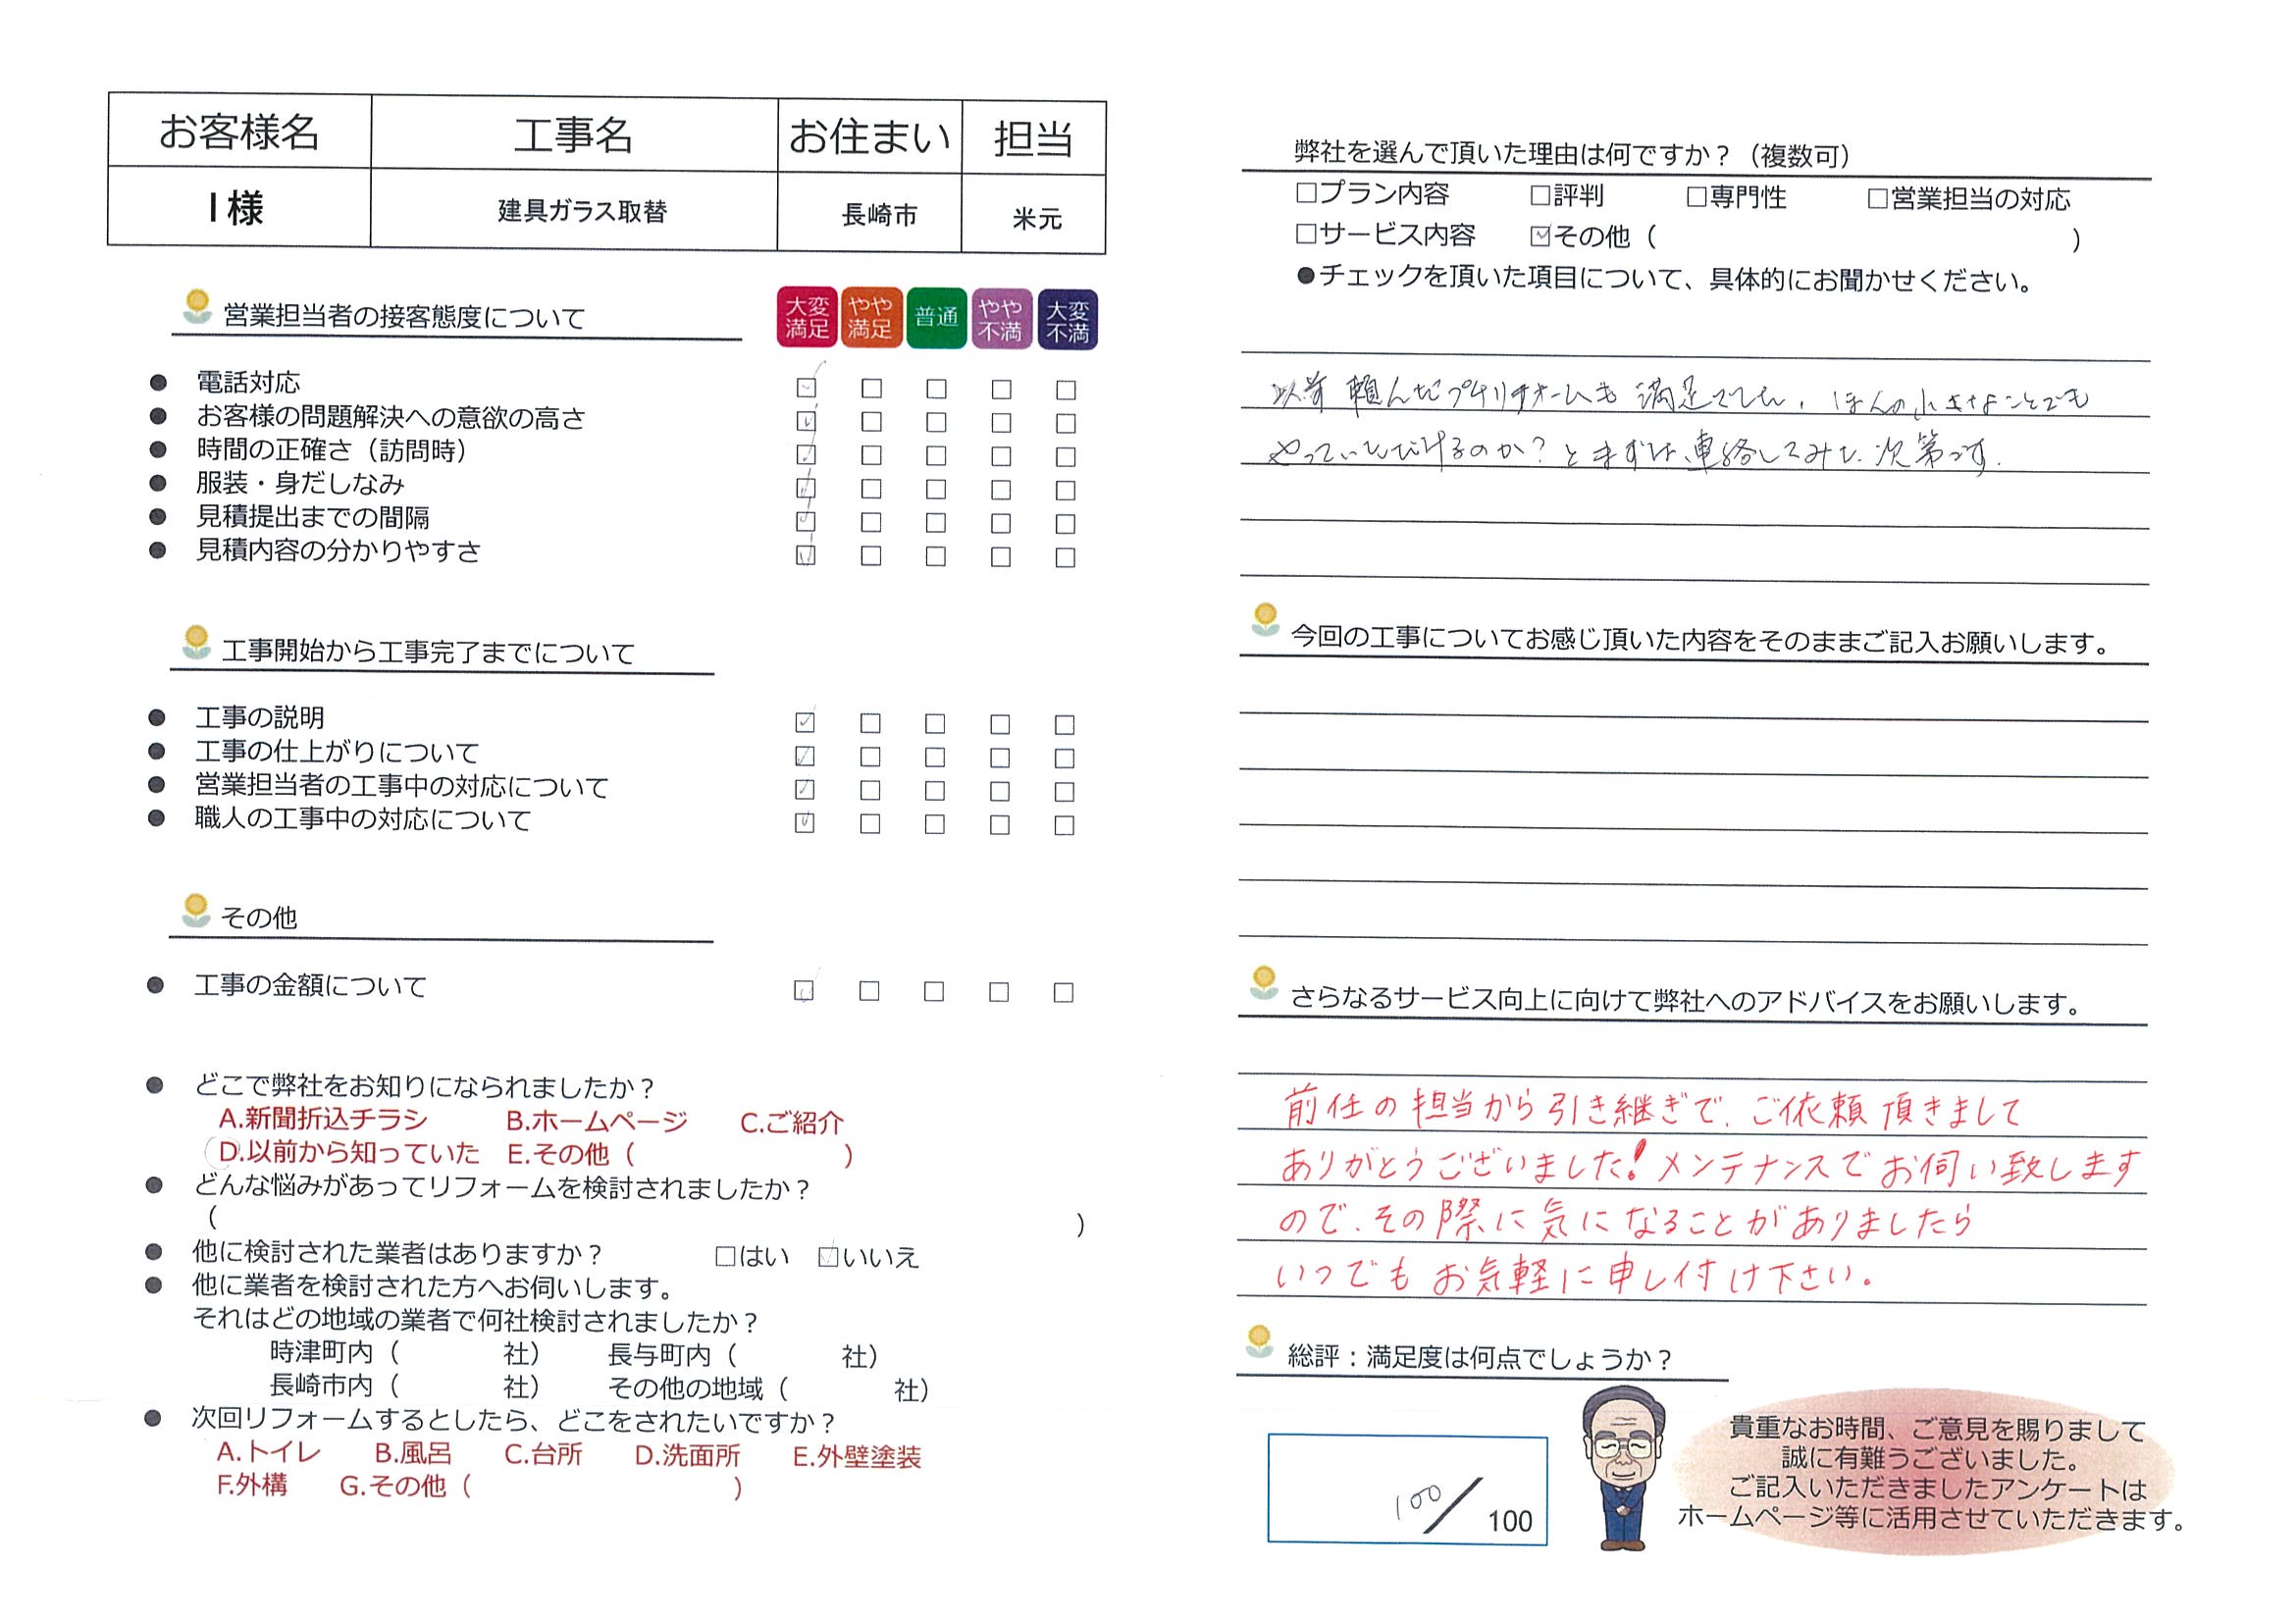 お客様名 工事名 お住まい 担当
I様 建具ガラス取替 長崎市 米元
営業担当者の接客態度について
大変満足 やや満足 普通 やや不満 大変不満
● 電話対応 ☑ □ □ □ □
● お客様の問題解決への意欲の高さ ☑ □ □ □ □
● 時間の正確さ（訪問時） ☑ □ □ □ □
● 服装・身だしなみ ☑ □ □ □ □
● 見積提出までの間隔 ☑ □ □ □ □
● 見積内容の分かりやすさ ☑ □ □ □ □
工事開始から工事完了までについて
● 工事の説明 ☑ □ □ □ □
● 工事の仕上がりについて ☑ □ □ □ □
● 営業担当者の工事中の対応について ☑ □ □ □ □
● 職人の工事中の対応について ☑ □ □ □ □
その他
● 工事の金額について ☑ □ □ □ □
● どこで弊社をお知りになられましたか？
A.新聞折込チラシ B.ホームページ C.ご紹介
D.以前から知っていた E.その他（ ）
● どんな悩みがあってリフォームを検討されましたか？
（ ）
● 他に検討された業者はありますか？ □はい ☑いいえ
● 他に業者を検討された方へお伺いします。
それはどの地域の業者で何社検討されましたか？
時津町内（ 社） 長与町内（ 社）
長崎市内（ 社） その他の地域（ 社）
● 次回リフォームするとしたら、どこをされたいですか？
A.トイレ B.風呂 C.台所 D.洗面所 E.外壁塗装
F.外構 G.その他（ ）
弊社を選んで頂いた理由は何ですか？（複数可）
□プラン内容 □評判 □専門性 □営業担当の対応
□サービス内容 ☑その他（ ）
●チェックを頂いた項目について、具体的にお聞かせください。
以前頼んだプチリフォームも満足でした。ほんの小さなことでも
やっていただけるのか？とまずは連絡してみた次第です.
今回の工事についてお感じ頂いた内容をそのままご記入お願いします。
さらなるサービス向上に向けて弊社へのアドバイスをお願いします。
前任の担当から引き継ぎで、ご依頼頂きまして
ありがとうございました!メンテナンスでお伺い致します
ので、その際に気になることがありましたら
いつでもお気軽に申し付け下さい。
総評：満足度は何点でしょうか？
100／100
貴重なお時間、ご意見を賜りまして
誠に有難うございました。
ご記入いただきましたアンケートは
ホームページ等に活用させていただきます。